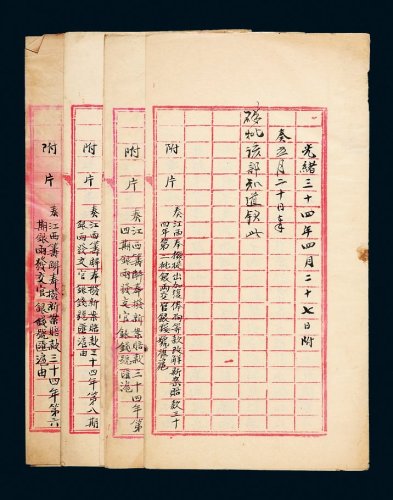 光緒三十四年四月二十七日附
奏五月二十日奉
硃批該部知道欽此
附片
奏江西奉撥提出加復俸餉等款改解新案賠款三十
四年第二批銀兩交官銀錢號匯滬
附片
奏江西籌解奉撥新案賠款三十四年第
四期銀兩發交官銀錢號匯滬
附片
奏江西籌解奉撥新案賠款三十四年第八期
銀兩發交官銀錢號匯滬由
附片
奏江西籌解奉撥新案賠款三十四年第六
期銀兩發交官銀錢號匯滬由